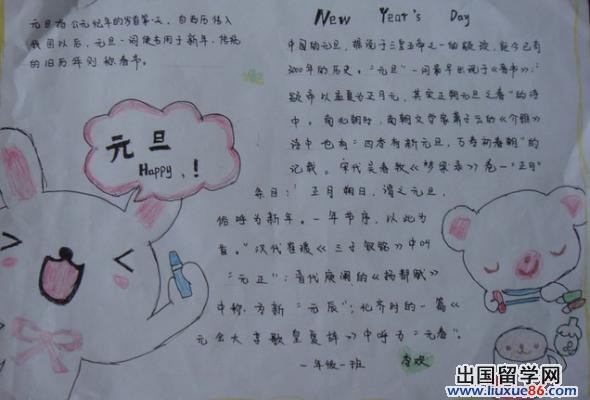 元旦为公元纪年的岁首第一天，自西历传入
我国以后，元旦一词便专用于新年，传统
的旧历年则称春节。
元旦
Happy！
New Year's Day
中国的元旦，据说于三皇五帝之一的颛顼，距今已有
3000年的历史。"元旦"一词最早出现于《晋书》："
颛帝以孟夏为正月元，其实正朔元旦之春"的诗
中。南北朝时，南朝文学家萧子云的《介雅》
诗中也有"四季有新元旦，万寿初春朝"的
记载。宋代吴自牧《梦粱录》卷一"正月"
条目："正月朔日，谓之元旦，
俗呼为新年。一年节序，以此为
首。"汉代崔瑗《三子钗铭》中叫
"元正"；晋代庾阐的《扬都赋》
中称为新"元辰"；北齐时的一篇《
元会大享歌皇夏辞》中呼为"元春"。
一年级一班
出国留学网
www.liuxue86.com